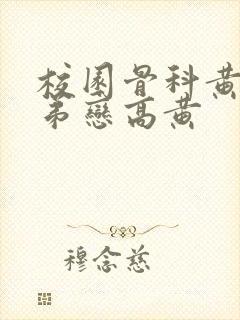 校園骨科黃
弟戀高黃
穆念慈